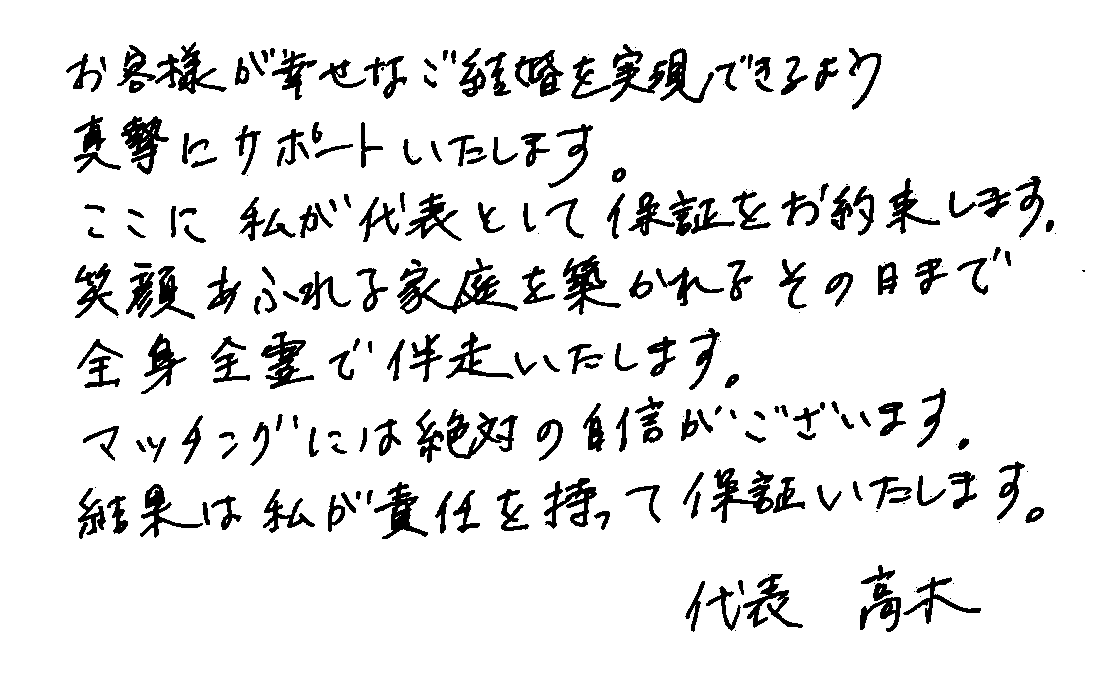 お客様が幸せなご結婚を実現できるよう
真摯にサポートいたします。
ここに私が代表として保証をお約束します。
笑顔あふれる家庭を築かれるその日まで
全身全霊で伴走いたします。
マッチングには絶対の自信がございます。
結果は私が責任を持って保証いたします。
代表 高木